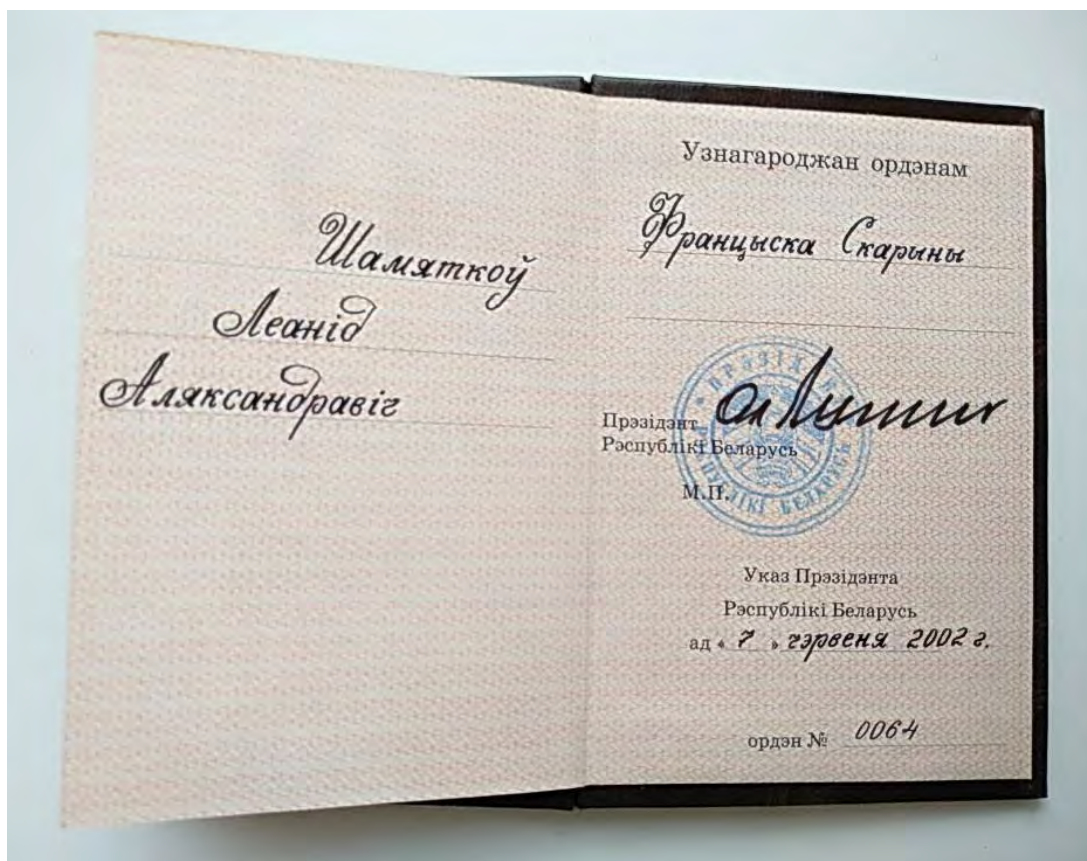 Шамяткоў
Леанід
Аляксандравіч
Узнагароджан ордэнам
Францыска Скарыны
Прэзідэнт
Рэспублікі Беларусь
М.П.
Указ Прэзідэнта
Рэспублікі Беларусь
ад « 7 » чэрвеня 2002 г.
ордэн № 0064